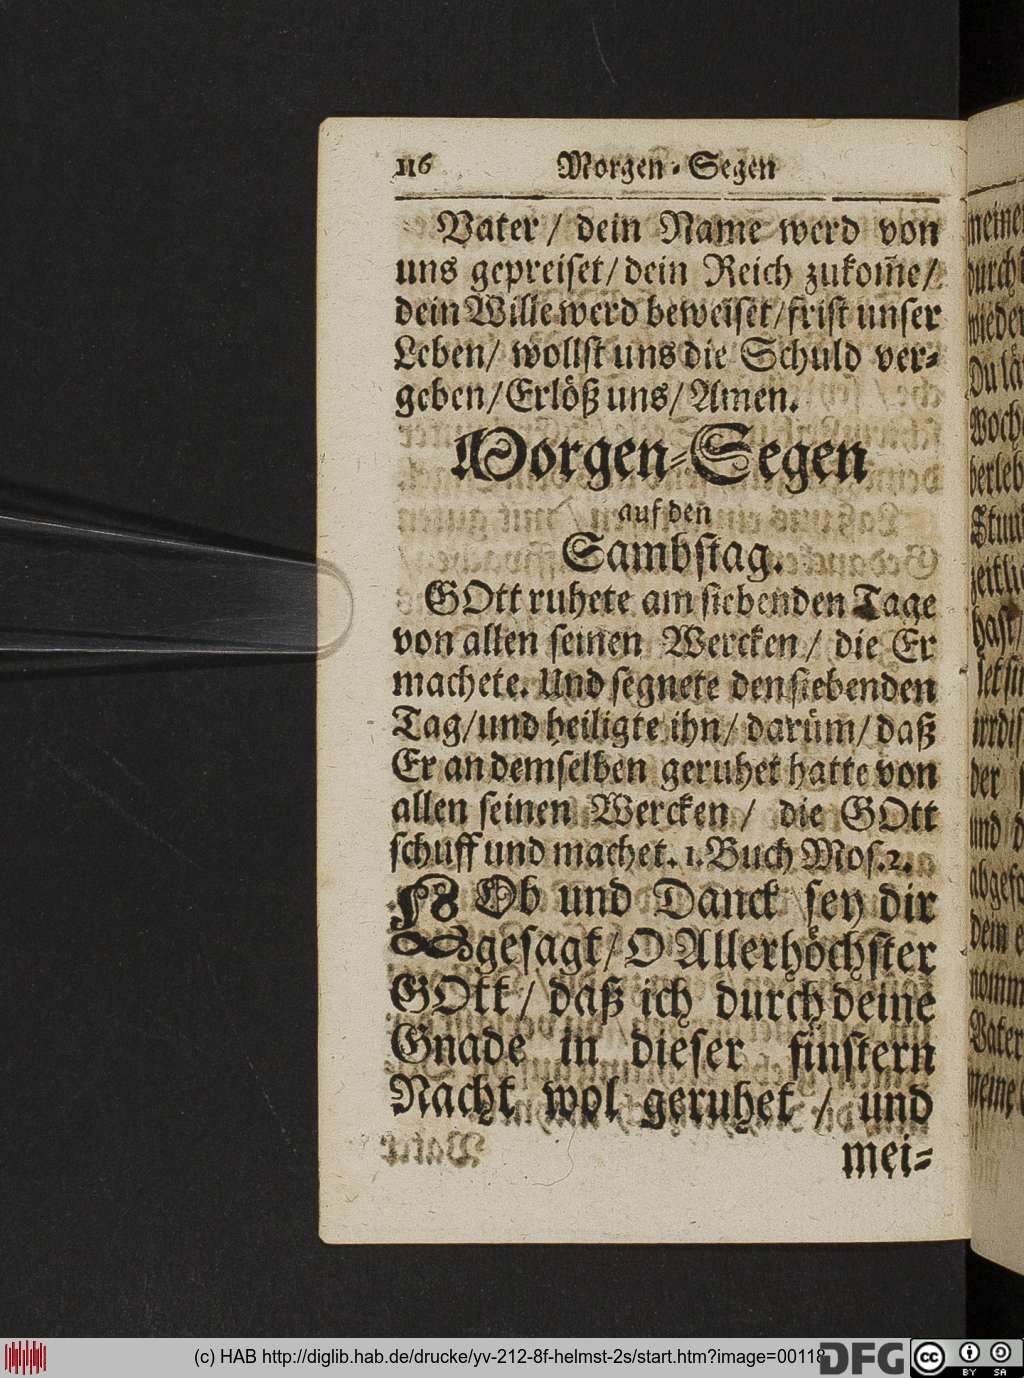 116 Morgen-Segen
Vater / dein Name werd von
uns gepreiset/dein Reich zukom̃e/
dein Wille werd beweiset/frist unser
Leben/ wollst uns die Schuld ver-
geben/Erlöß uns/Amen.
Morgen-Segen
auf den
Sambstag.
GOtt ruhete am siebenden Tage
von allen seinen Wercken/ die Er
machete. Und segnete den siebenden
Tag/und heiligte ihn/ darüm/daß
Er an demselben geruhet hatte von
allen seinen Wercken/ die GOtt
schuff und machet. 1. Buch Mos. 2.
LOb und Danck sey dir
gesagt/O Allerhöchster
GOtt/ daß ich durch deine
Gnade in dieser finstern
Nacht wol geruhet / und
mei-
(c) HAB http://diglib.hab.de/drucke/yv-212-8f-helmst-2s/start.htm?image=00118
DFG
cc
BY SA